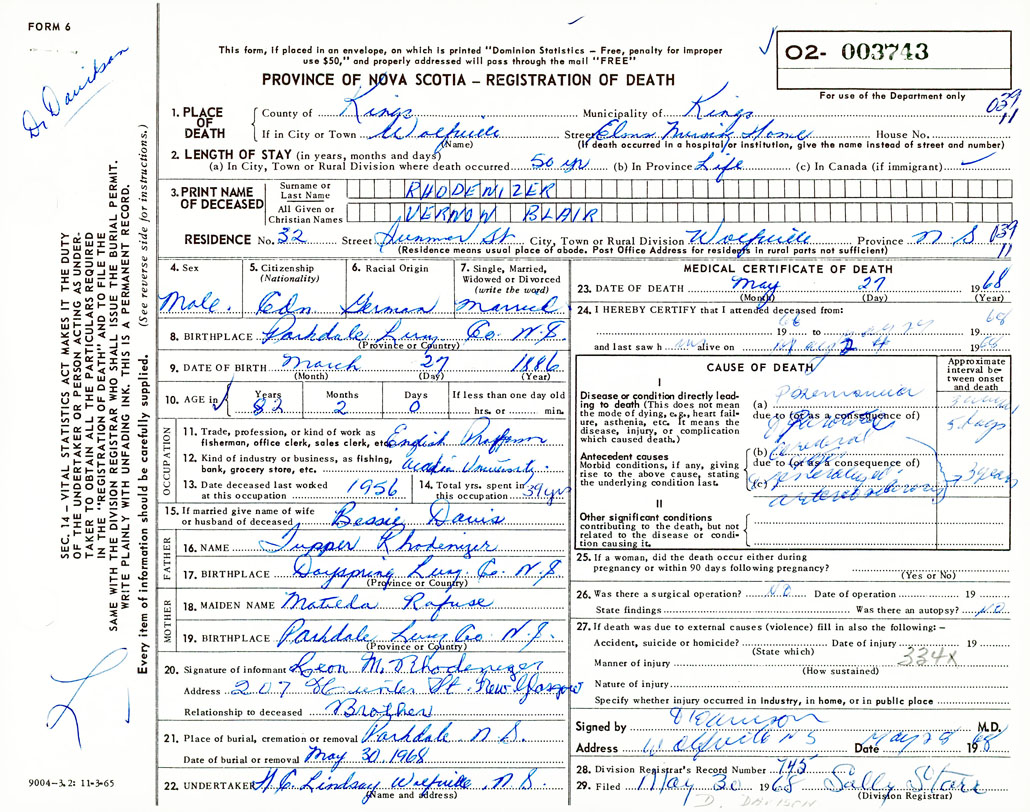 FORM 6
This form, if placed in an envelope, on which is printed "Dominion Statistics – Free, penalty for improper
use $50," and properly addressed will pass through the mail "FREE"
PROVINCE OF NOVA SCOTIA – REGISTRATION OF DEATH
O2- 003743
For use of the Department only
Dr Davidson
039
11
1. PLACE OF DEATH
County of Kings Municipality of Kings
If in City or Town Wolfville Street Elms Nursing Home House No.
(Name) (If death occurred in a hospital or institution, give the name instead of street and number)
2. LENGTH OF STAY (in years, months and days)
(a) In City, Town or Rural Division where death occurred 50 yr (b) In Province Life (c) In Canada (if immigrant)
3. PRINT NAME OF DECEASED
Surname or Last Name RHODENIZER
All Given or Christian Names VERNON BLAIR
RESIDENCE No. 32 Street St City, Town or Rural Division Wolfville Province N S
039
11
(Residence means usual place of abode. Post Office Address for residents in rural parts not sufficient)
4. Sex Male.
5. Citizenship (Nationality) Cdn
6. Racial Origin German
7. Single, Married, Widowed or Divorced (write the word) Married
8. BIRTHPLACE Parkdale Lun. Co. N.S.
(Province or Country)
9. DATE OF BIRTH March 27 1886
(Month) (Day) (Year)
10. AGE in Years 82 Months 2 Days 0 If less than one day old hrs. or min.
OCCUPATION
11. Trade, profession or kind of work as fisherman, office clerk, sales clerk, etc. English Professor
12. Kind of industry or business, as fishing, bank, grocery store, etc. Acadia University.
13. Date deceased last worked at this occupation 1956
14. Total yrs. spent in this occupation 39 yrs
15. If married give name of wife or husband of deceased Bessie Davis
FATHER
16. NAME Tupper Rhodenizer
17. BIRTHPLACE Dayspring Lung. Co. N.S
(Province or Country)
MOTHER
18. MAIDEN NAME Matilda Rafuse
19. BIRTHPLACE Parkdale Lung Co. N.S.
(Province or Country)
20. Signature of informant Leon M. Rhodenizer
Address 207 St. New Glasgow
Relationship to deceased Brother
21. Place of burial, cremation or removal Parkdale N.S.
Date of burial or removal May 30, 1968
22. UNDERTAKER W.C. Lindsay Wolfville, N.S.
(Name and address)
MEDICAL CERTIFICATE OF DEATH
23. DATE OF DEATH May 27 1968
(Month) (Day) (Year)
24. I HEREBY CERTIFY that I attended deceased from:
68 19 to 19 68
and last saw him alive on 1968
CAUSE OF DEATH
Approximate interval between onset and death
I
Disease or condition directly leading to death (This does not mean the mode of dying, e.g., heart failure, asthenia, etc. It means the disease, injury, or complication which caused death.)
(a)
due to (or as a consequence of)
5 days
Antecedent causes
Morbid conditions, if any, giving rise to the above cause, stating the underlying condition last.
(b) Cerebral
due to (or as a consequence of)
(c) arteriosclerosis
3 years
II
Other significant conditions contributing to the death, but not related to the disease or condition causing it.
25. If a woman, did the death occur either during pregnancy or within 90 days following pregnancy?
(Yes or No)
26. Was there a surgical operation? NO Date of operation 19
State findings Was there an autopsy? NO
27. If death was due to external causes (violence) fill in also the following: –
Accident, suicide or homicide? Date of injury 19
(State which)
334X
Manner of injury
(How sustained)
Nature of injury
Specify whether injury occurred in industry, in home, or in public place
Signed by M.D.
Address Wolfville NS Date May 28 1968
28. Division Registrar's Record Number 745
29. Filed May 30 1968 Sally Starr
(Division Registrar)
D. DAVISON
SEC. 14 – VITAL STATISTICS ACT MAKES IT THE DUTY
OF THE UNDERTAKER OR PERSON ACTING AS UNDER-
TAKER TO OBTAIN ALL THE PARTICULARS REQUIRED
IN THE "REGISTRATION OF DEATH" AND TO FILE THE
SAME WITH THE DIVISION REGISTRAR WHO SHALL ISSUE THE BURIAL PERMIT.
WRITE PLAINLY WITH UNFADING INK. THIS IS A PERMANENT RECORD.
Every item of information should be carefully supplied. (See reverse side for instructions.)
9004–3.2: 11-3-65